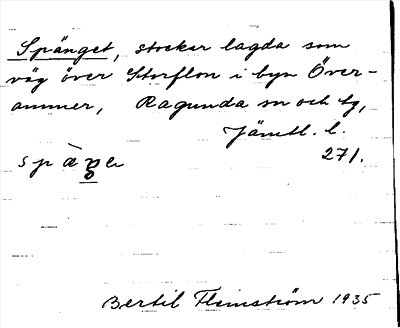 Spänget, stockar lagda som
väg över Storflon i byn Över-
ammer, Ragunda sn och tg,
Jämtl. l.
271.
Bertil Flemström 1935